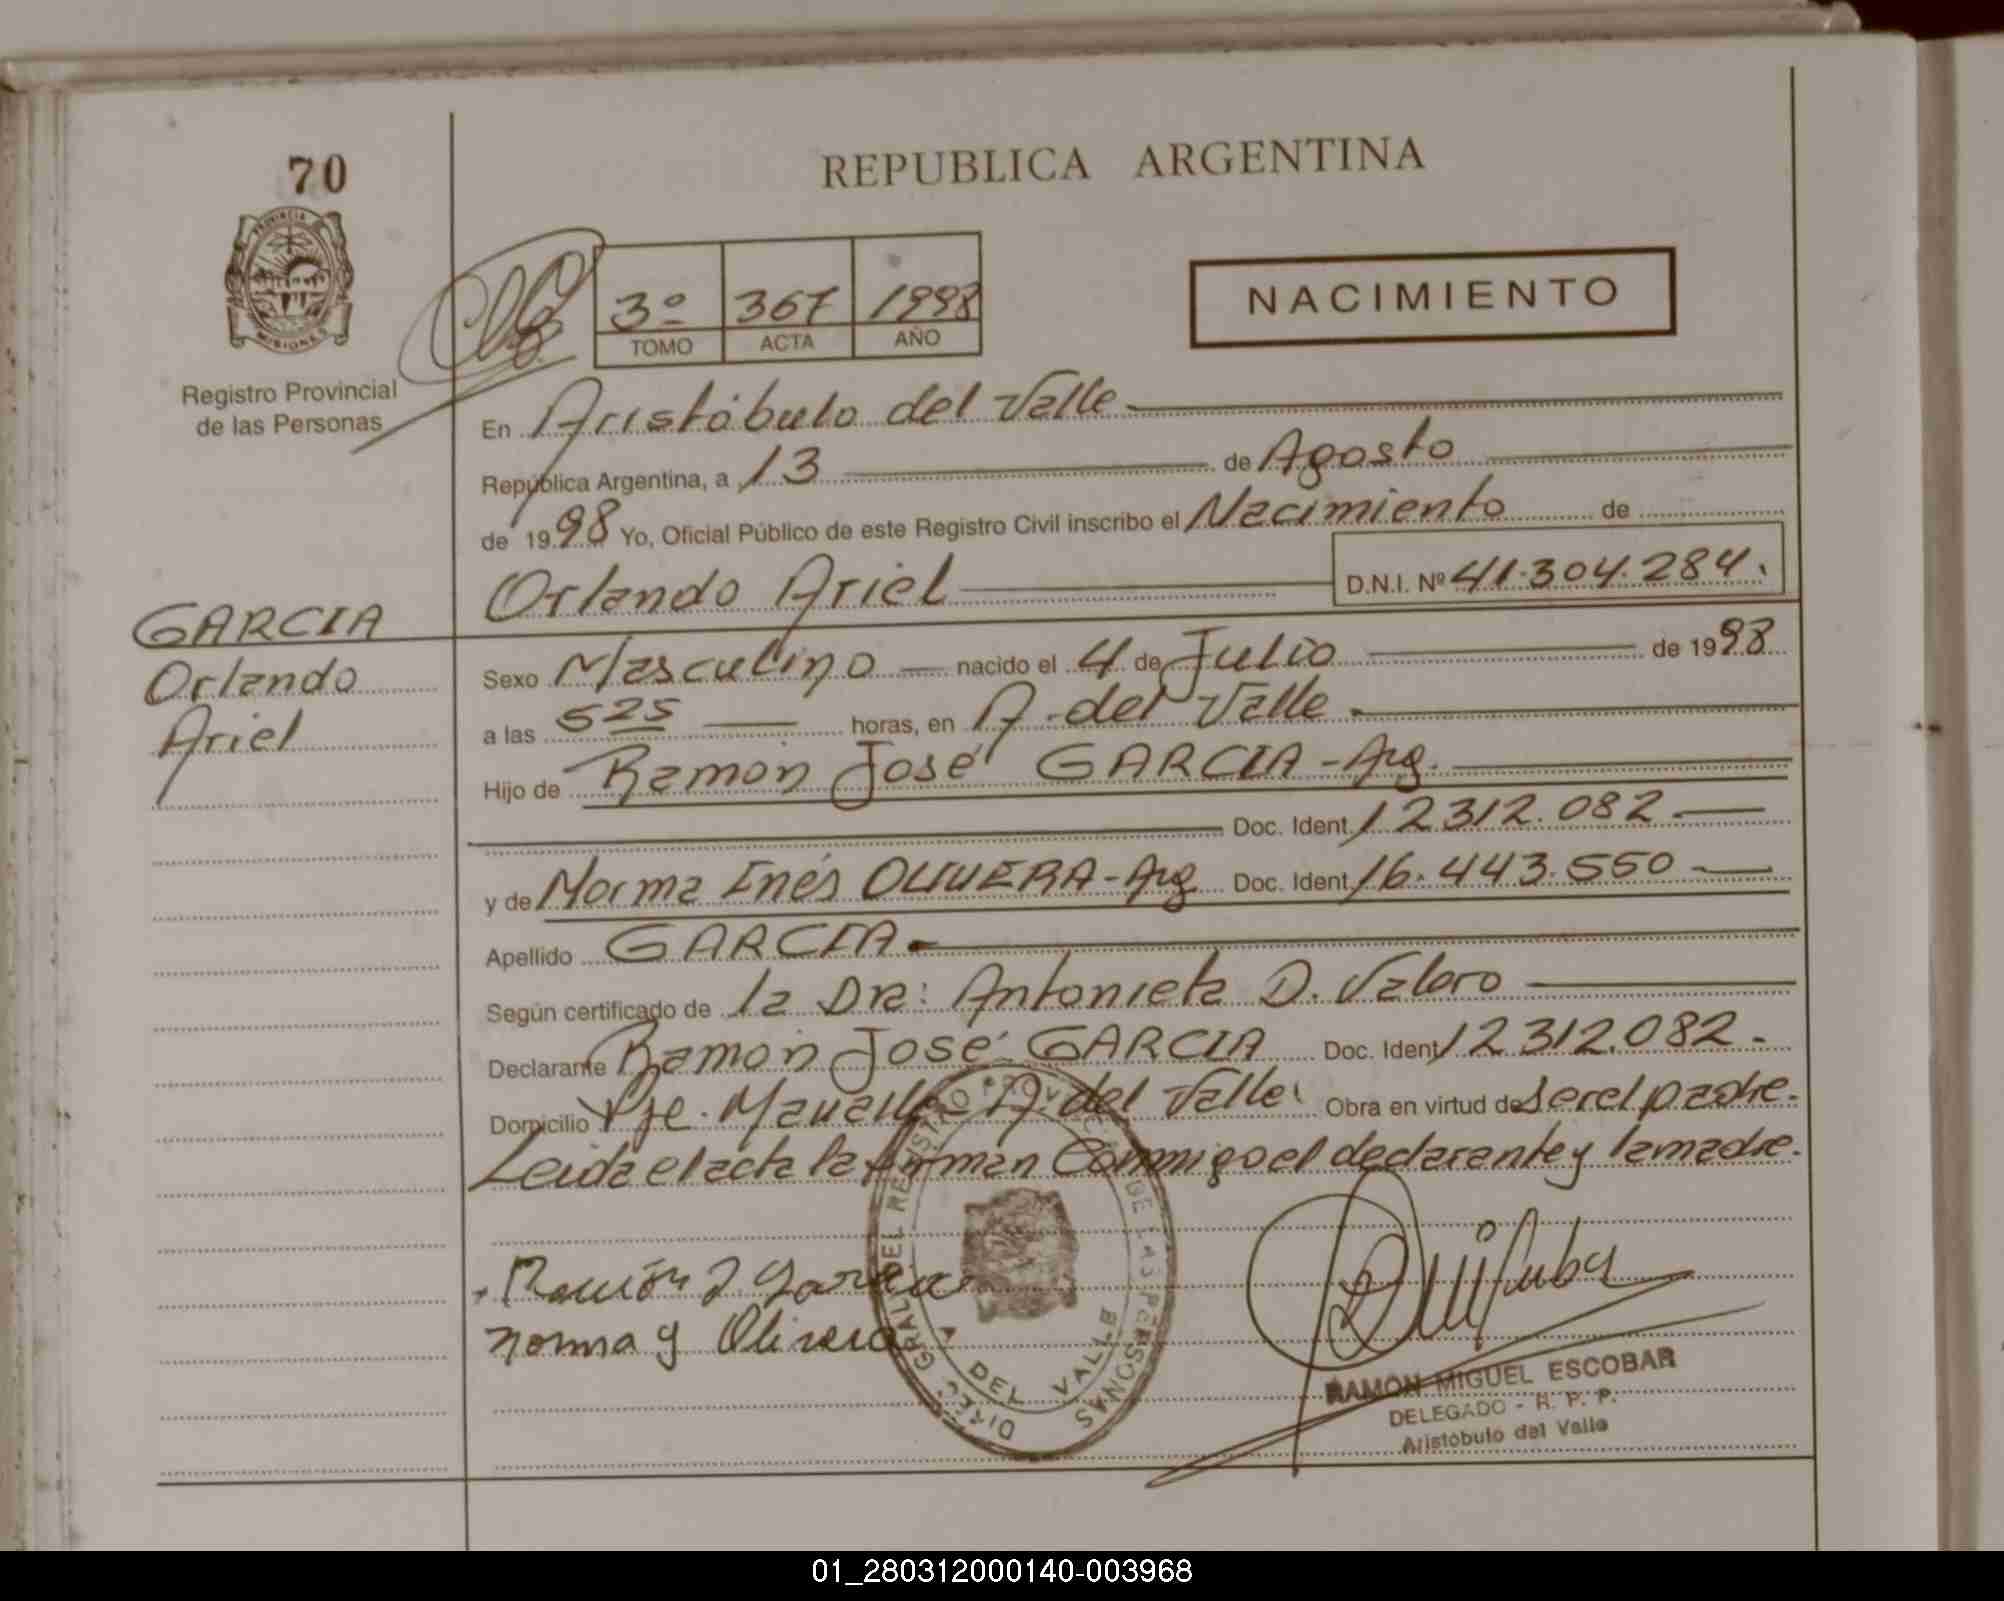 70
REPUBLICA ARGENTINA
PROVINCIA
MISIONES
Registro Provincial
de las Personas
3º 367 1998
TOMO ACTA AÑO
NACIMIENTO
En Aristóbulo del Valle
República Argentina, a 13 de Agosto
de 1998 Yo, Oficial Público de este Registro Civil inscribo el Nacimiento de
Orlando Ariel D.N.I. Nº 41.304.284.
GARCIA
Orlando
Ariel
Sexo Masculino nacido el 4 de Julio de 1998
a las 525 horas, en A. del Valle
Hijo de Ramón José GARCIA - Arg.
Doc. Ident. 12312.082
y de Norma Inés OLIVERA - Arg Doc. Ident. 16.443.550
Apellido GARCIA
Según certificado de la Dra: Antonieta D. Valoro
Declarante Ramón José GARCIA Doc. Ident 12312.082.
Domicilio Pje. A. del Valle. Obra en virtud de ser el padre.
Leida el acta la firman Conmigo el declarante y la madre.
Ramón J. Garcia
norma y Olivera
DIREC. GRAL. DEL REGISTRO PROVINCIAL DE LAS PERSONAS
DEL VALLE
RAMON MIGUEL ESCOBAR
DELEGADO - R. P. P.
Aristóbulo del Valle
01_280312000140-003968